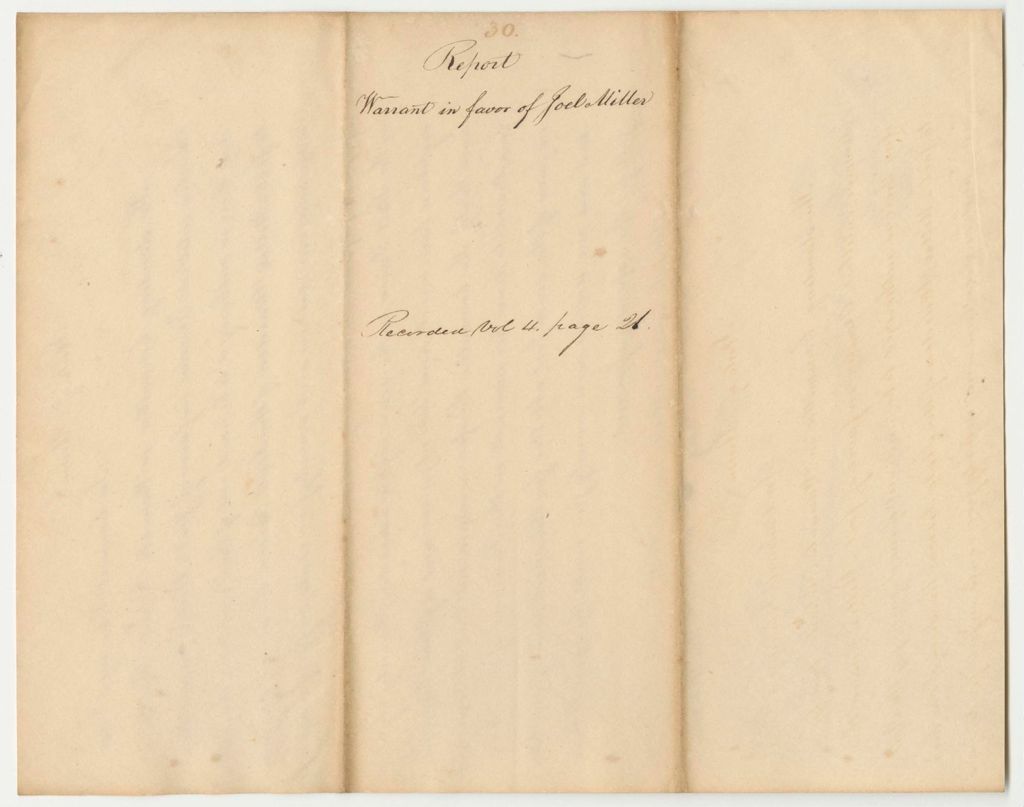 30.
Report
Warrant in favor of Joel Miller
Recorded Vol 4. page 21.